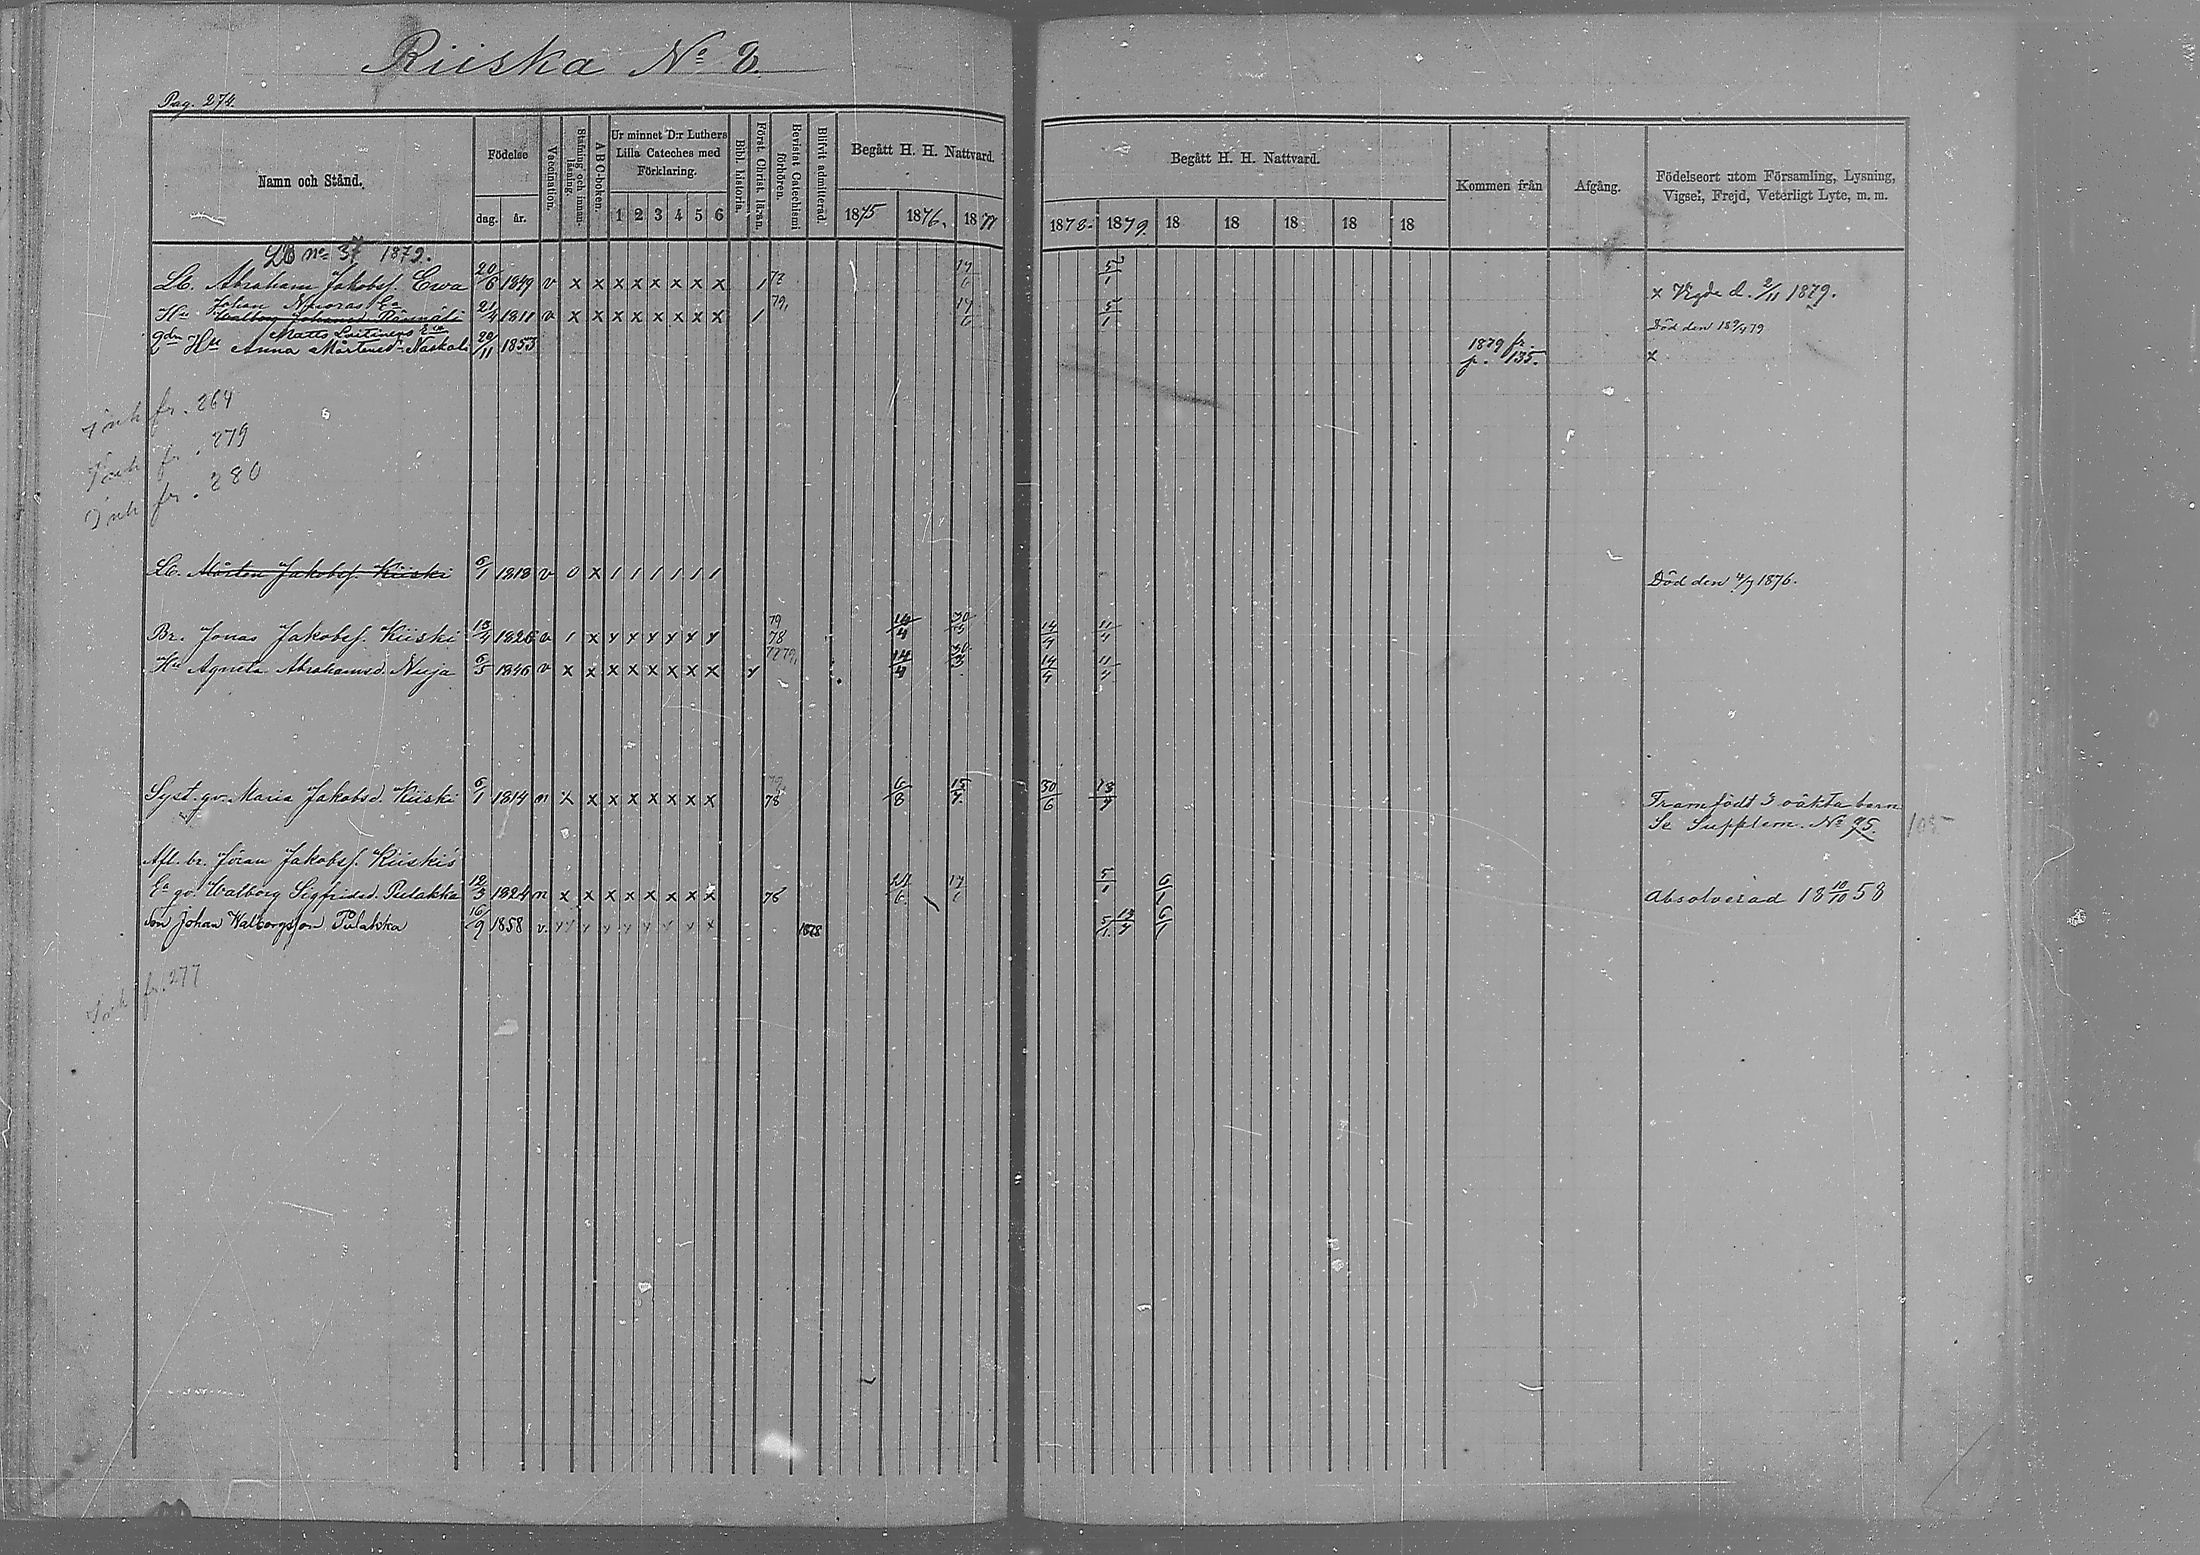 Riiska No 2.
Pag. 274.
Namn och Stånd.
Födelse
dag. år.
Vaccination.
Stafning och innanläsning.
A B C-boken.
Ur minnet D:r Luthers Lilla Cateches med Förklaring.
1 2 3 4 5 6
Bibl. historia.
Först. Christ. läran.
Bevistat Catechismi förhören.
Blifvit admitterad.
Begått H. H. Nattvard.
1875 1876. 1877
Begått H. H. Nattvard.
1878. 1879. 18 18 18 18 18
Kommen från
Afgång.
Födelseort utom Församling, Lysning, Vigsel, Frejd, Veterligt Lyte, m. m.
LB no 37 1879.
Lb. Abraham Jakobsf. Ewa 20/6 1849 v x x x x x x x x 1 78 17/6 5/1 x Vigde d. 2/11 1879.
Johan
Hu Walborg Johansd. 21/4 1811 v x x x x x x x x 1 79 17/6 5/1 Död den 18 9/4 79
Matts Laitinens Ea
gdn Hu Anna Mårtensd. Naskali 20/11 1853 1879 fr. p. 135. x
Inh fr. 264
Inh fr. 279
Inh fr. 280
Lb. Mårten Jakobsf. Kiiski 6/1 1818 v 0 x 1 1 1 1 1 1 Död den 4/7 1876.
Br. Jonas Jakobsf. Kiiski 18/4 1826 v 1 x y y y y y y 79 78 14/4 30/3 14/4 11/4
Hu Agneta Abrahamsd. Nuja 6/5 1846 v x x x x x x x x y 77 79 14/4 30/3 14/4 11/4
Syst. gv. Maria Jakobsd. Kiiski 6/1 1814 n x x x x x x x x 79 78 6/8 15/7 30/6 13/4 Framfödt 3 oäkta barn
Se Supplem. No 95. 105
Afl. br. Jöran Jakobsf. Kiiskis
Ea gv. Walborg Sigfridsd. Pulakka 12/3 1824 n x x x x x x x x 76 17/6 5/1 6/1 Absolverad 18 10/10 58
Son Johan Walborgsson Pulakka 16/9 1858 v. y y y y y y y y x 1878 5/1 13/4 6/1
Inh fr. 277